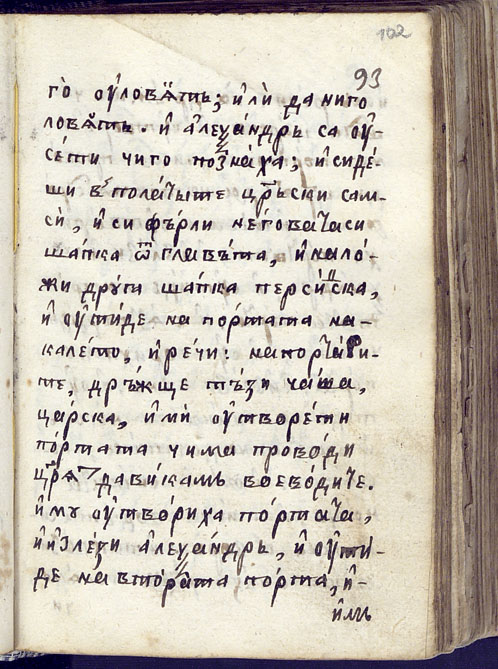 102
93
го̀ ѹловѧ́тъ; и҆лѝ да ниго
ловѧ́тъ. и҆ а҆леѯа́ндръ са ѹ-
се́ти чиго позна́ха, и҆сиде́-
ши в полаты́те цр҃ьски сам-
сѝ, и҆си фъ́рли не́говатаси
шапка ѿ главъ́та, и҆нало́-
жи дрꙋ́га шапка перси́иска,
и҆ ѹ҆ти́де на по́ртата на-
кале́то, и҆ре́чи: напортари-
те, дръ́жще тъ́зи ча́ша,
ца́рска, и҆мѝ ѹ҆творе́ти
по́ртата чима прово́ди
цр҃ѧ да ви́камъ воево́дите.
и҆мꙋ ѹ҆тво́риха по́ртата,
и҆и҆зле́зи а҆леѯа́ндръ, и҆ ѹ҆ти́-
де на вто́рата порта, и҆-
и҆мъ